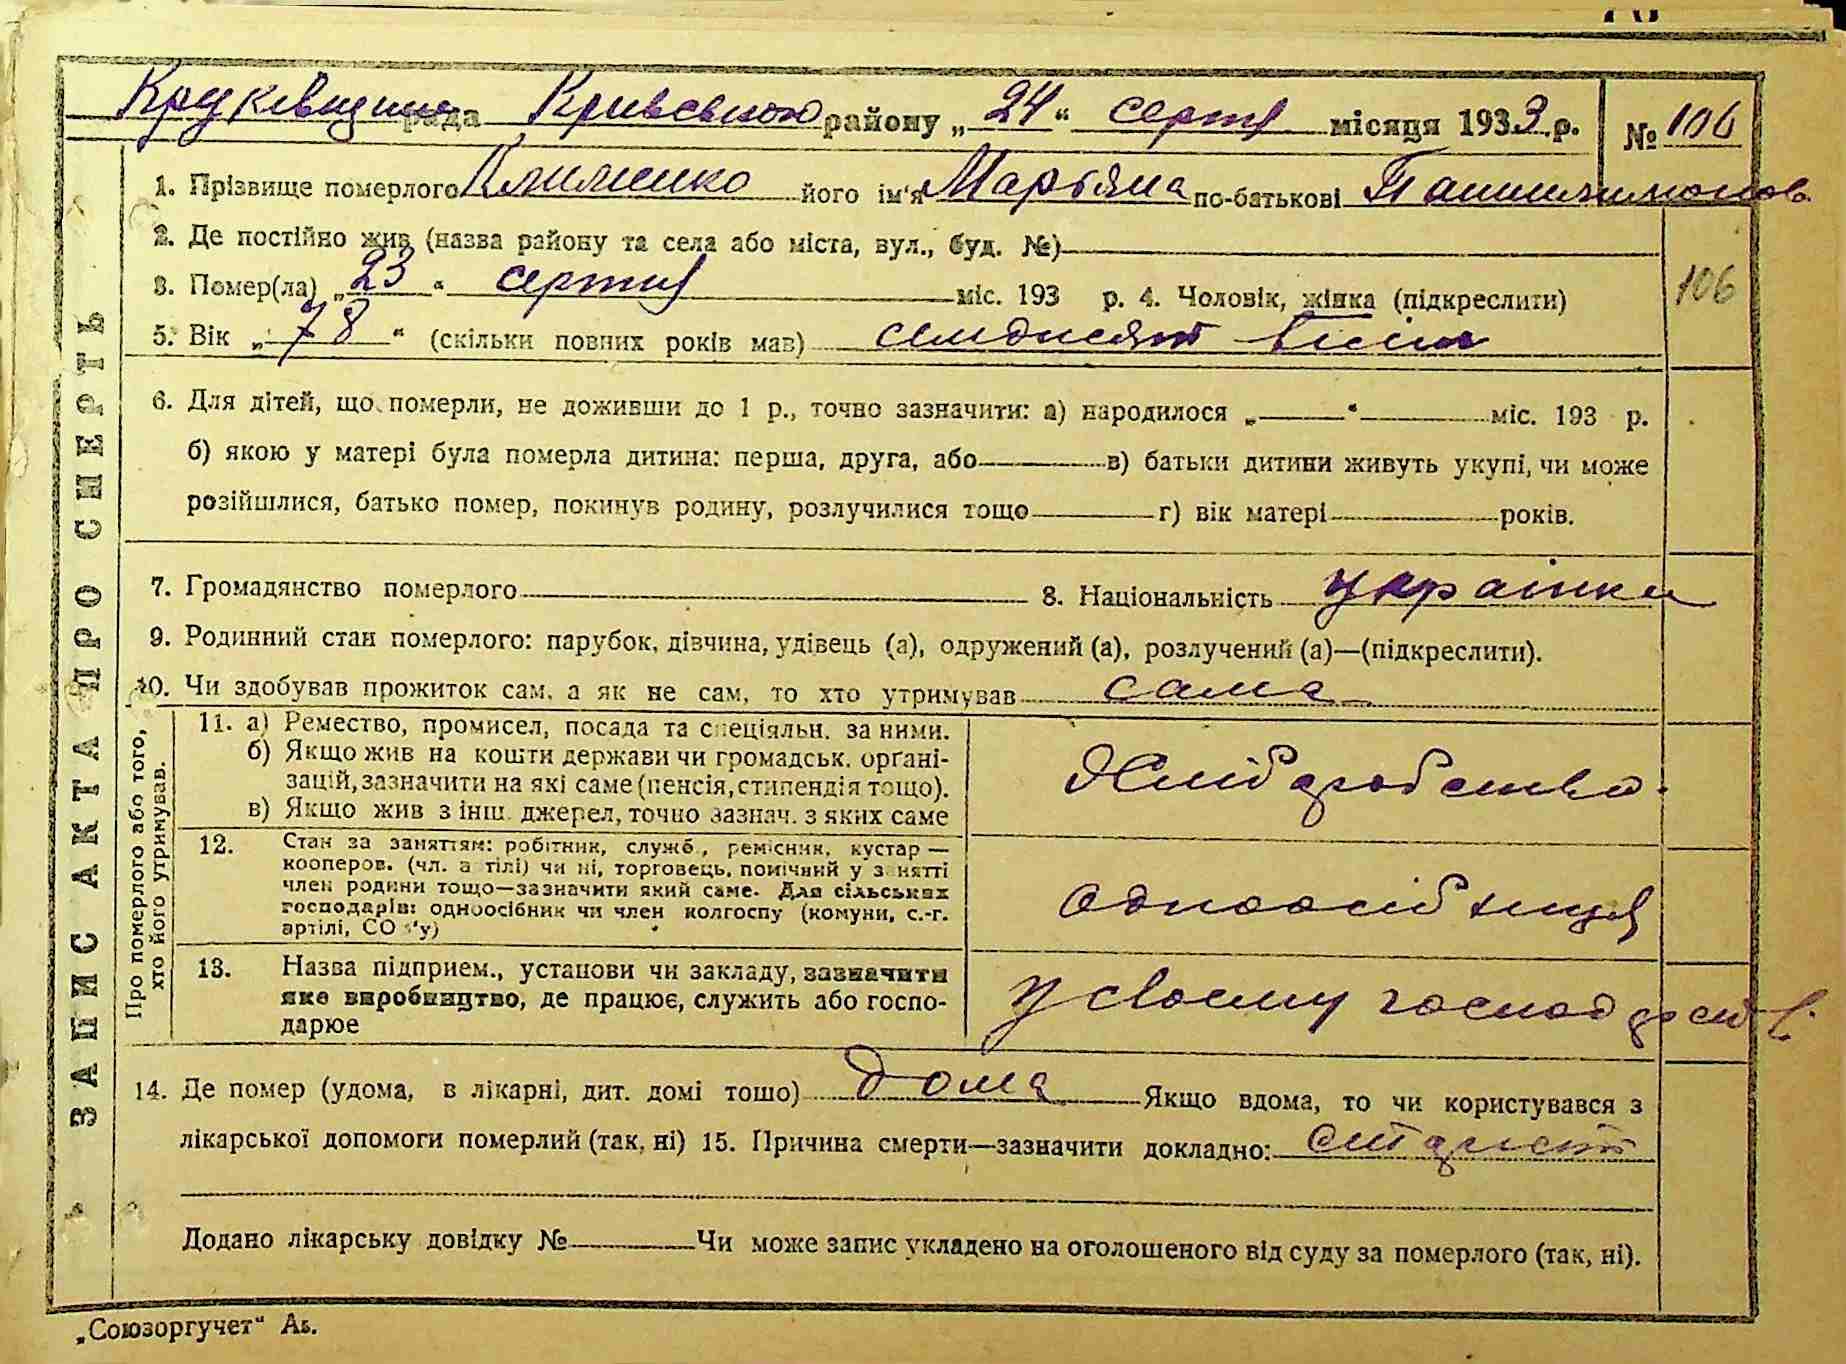 рада Київського району „24“ серпня місяця 1933.р. № 106
1. Прізвище померлого Клименко його ім'я Мар'яна по-батькові
2. Де постійно жив (назва району та села або міста, вул., буд. №)
106
3. Помер(ла) „23“ серпня міс. 193 р. 4. Чоловік, жінка (підкреслити)
5. Вік „78“ (скільки повних років мав) симдисят вісім
6. Для дітей, що померли, не доживши до 1 р., точно зазначити: а) народилося „ “ міс. 193 р.
б) якою у матері була померла дитина: перша, друга, або в) батьки дитини живуть укупі, чи може
розійшлися, батько помер, покинув родину, розлучилися тощо г) вік матері років.
7. Громадянство померлого 8. Національність українка
9. Родинний стан померлого: парубок, дівчина, удівець (а), одружений (а), розлучений (а)—(підкреслити).
10. Чи здобував прожиток сам, а як не сам, то хто утримував сама
ЗАПИС АКТА ПРО СМЕРТЬ
Про померлого або того,
хто його утримував.
11. а) Ремество, промисел, посада та спеціяльн. за ними.
б) Якщо жив на кошти держави чи громадськ. орґані-
зацій, зазначити на які саме (пенсія, стипендія тощо).
в) Якщо жив з інш. джерел, точно зазнач. з яких саме
Хліборобство.
12. Стан за заняттям: робітник, служб., ремісник, кустар—
кооперов. (чл. артілі) чи ні, торговець, помічний у занятті
член родини тощо—зазначити який саме. Для сільських
господарів: одноосібник чи член колгоспу (комуни, с.-г.
артілі, СО 'у)
одноосібниця
13. Назва підприєм., установи чи закладу, зазначити
яке виробництво, де працює, служить або госпо-
дарює
у своєму господарстві
14. Де помер (удома, в лікарні, дит. домі тощо) дома Якщо вдома, то чи користувався з
лікарської допомоги померлий (так, ні) 15. Причина смерти—зазначити докладно: старість
Додано лікарську довідку № Чи може запис укладено на оголошеного від суду за померлого (так, ні).
„Союзоргучет“ Ав.